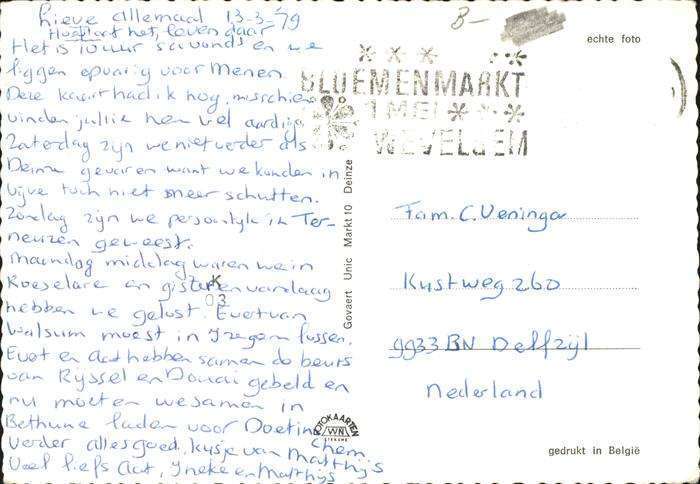 Lieve allemaal 13-3-79
Hoe gaat het, leven daar
Het is 10 uur s avonds en we
liggen epvarig voor Menen
Deze kaart had ik nog, misschien
vinden jullie hem wel aardig.
Zaterdag zijn we niet verder als
Deinze gevaren want we konden in
Vijve toch niet meer schutten.
Zondag zijn we persoonlijk in Ter-
neuzen geweest.
Maandag middag waren we in
Roeselare en gisteren vandaag
hebben we gelost. Evert van
Walsum moest in Izegem lussen.
Evert en Aat hebben samen de beurs
van Rijssel en Douai gebeld en
nu moeten we samen in
Bethune laden voor Doetin
chem
Verder alles goed, kusje van Matthijs
Veel liefs Aat, Ineke en Matthijs
K
03
Govaert Unic Markt 10 Deinze
FOTOKAARTEN
B-
echte foto
BLOEMENMARKT
1 MEI
WEVELGEM
Fam. C. Veninga
Kustweg 260
9933 BN Delfzijl
Nederland
gedrukt in België